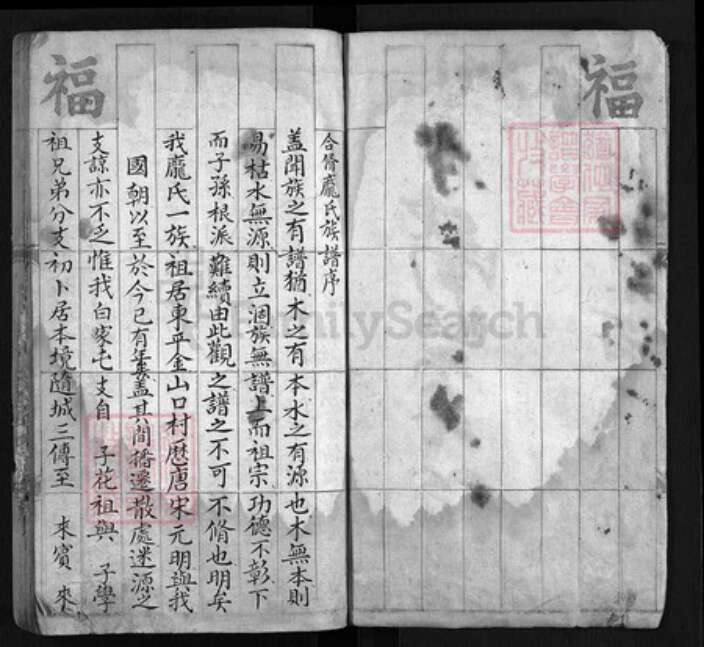 福
福
合脩龐氏族譜序
蓋聞族之有譜猶木之有本水之有源也木無本則
易枯水無源則立涸族無譜上而祖宗功德不彰下
而子孫根派難續由此觀之譜之不可不脩也明矣
我龐氏一族祖居東平金山口村歷唐宋元明與我
國朝以至於今已有年矣蓋其間播遷散處迷源之
支諒亦不乏惟我白家屯支自 子花祖與 子學
祖兄弟分支初卜居本境隨城三傳至 來賓 來
FamilySearch